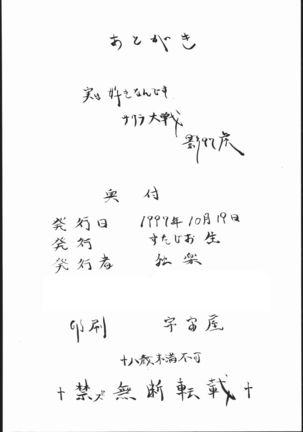 あとがき
実は好きなんです
サクラ大戦
影牧虎
奥付
発行日 1997年10月19日
発行 すたじお生
発行者 独楽
印刷 宇宙屋
十八歳未満不可
†禁〆無断転載†